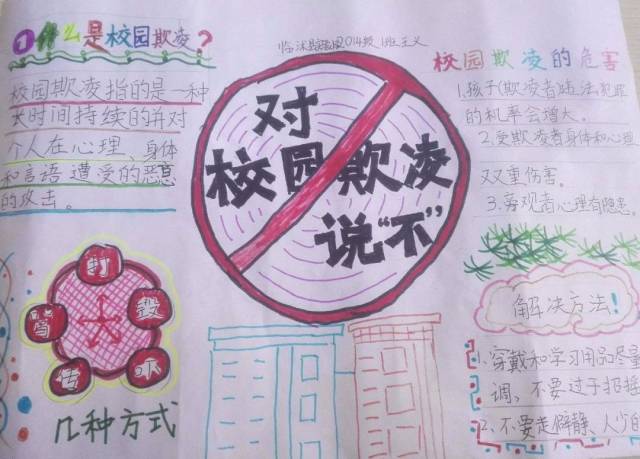 1什么是校园欺凌？
校园欺凌指的是一种
长时间持续的并对
个人在心理、身体
和言语遭受的恶意
的攻击。
对
校园欺凌
说“不”
校园欺凌的危害
1.孩子(欺凌者)违法犯罪
的机率会增大。
2.受欺凌者身体和心理
双重伤害。
3.旁观者心理有隐患。
打
骂
毁
吓
几种方式
解决方法!
1、穿戴和学习用品尽量
调、不要过于招摇
2、不要走僻静、人少的